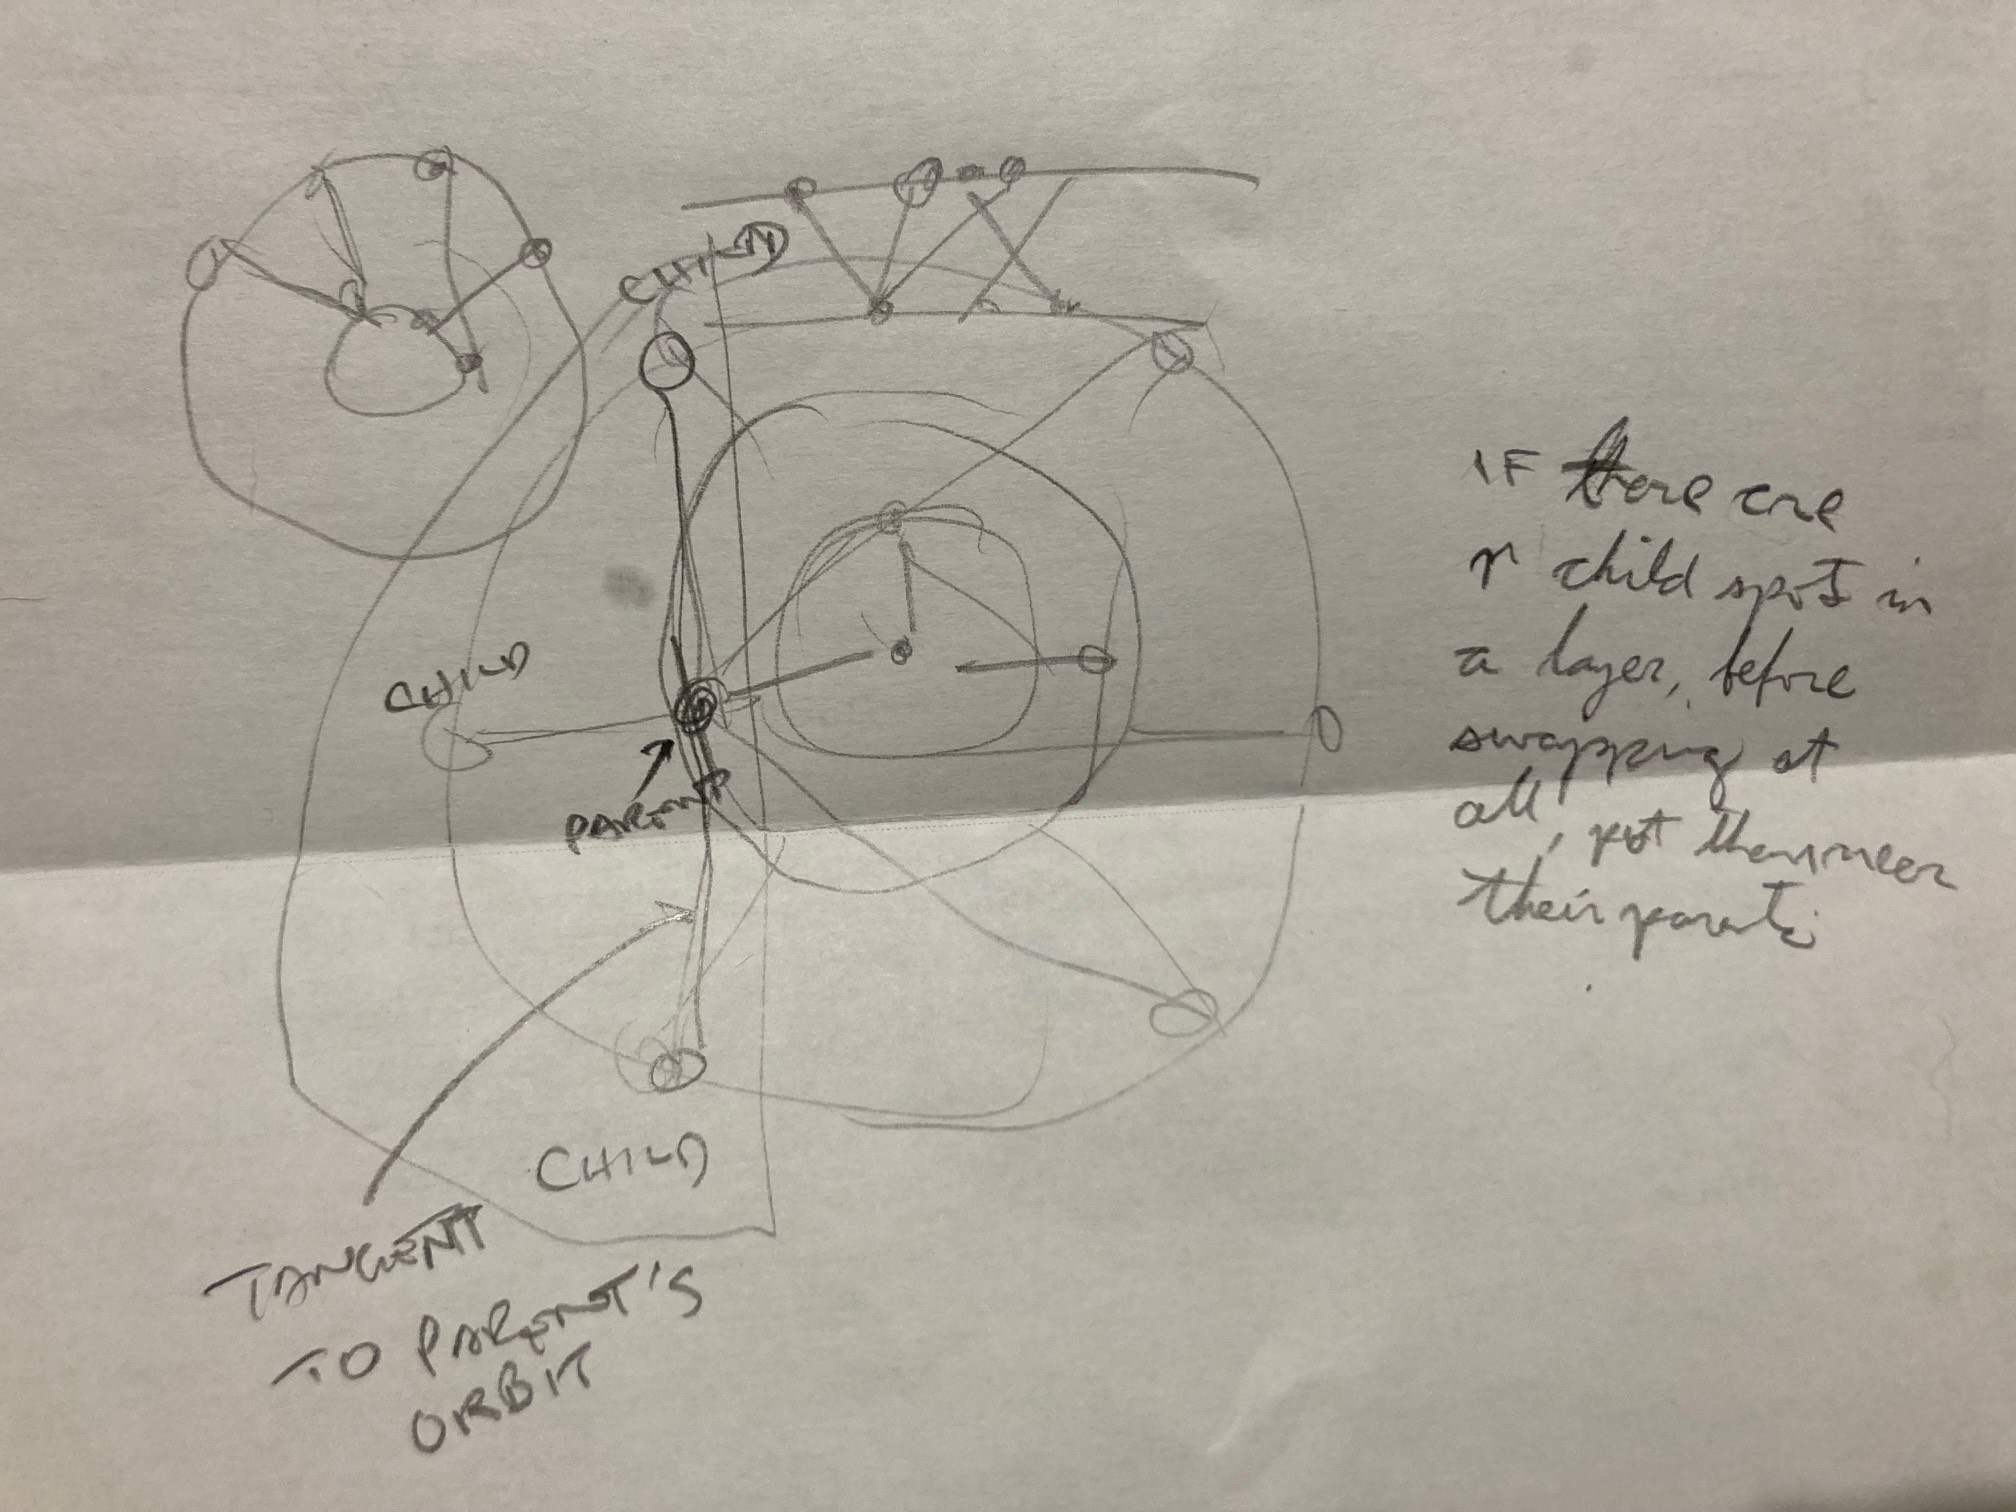 CHILD
CHILD
PARENT
CHILD
TANGENT
TO PARENT'S
ORBIT
IF there are
n child spots in
a layer, before
swapping at
all, put them near
their parents